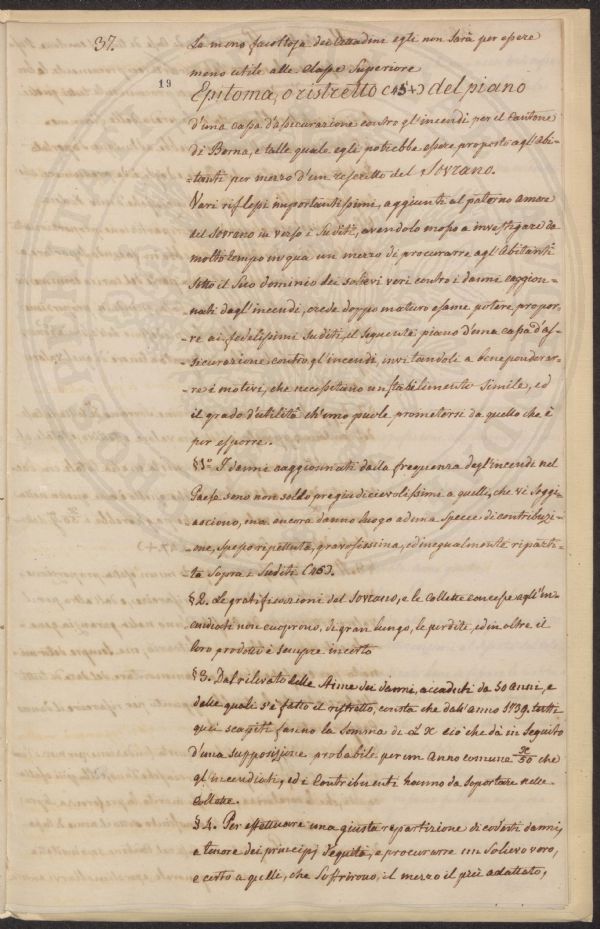 37.
La meno facoltosa dei Cittadini egli non sarà per essere
meno utile alle Classe Superiore
19
Epitoma, o ristretto (45+) del piano
d'una cassa d'assecurazione contro gl'incendi per il Cantone
di Berna, e talle quale egli potrebbe essere proposto agl'Abi-
-tanti per mezzo d'un rescritto del Sovrano.
Vari riflessi importantissimi, aggiunti al paterno amore
del Sovrano in verso i Suditi, avendolo mosso a investigare da
molto tempo in qua un mezzo di procurarre agl'Abitanti
sotto il suo dominio dei solievi veri contro i danni caggion-
nati dagl'incendi, crede doppo maturo esame potere propor-
re ai fedelissimi suditi, il seguente piano d'una cassa d'as-
-sicurazione contro gl'incendi, invitandoli a bene ponderar-
-re i motivi, che necessitano un stabilimento simile, ed
il grado d'utilità ch'erno puole prometersi da quello che è
per esporre.
§1.o I danni caggionnati dalla frequenza degl'incendi nel
Paese sono non sollo pregiudicievolissimi a quelli, che vi soggi-
-asciono, ma ancora danno luogo ad una specce di contribuzi-
-one, spesso ripettuta, gravosissima, ed inegualmente riparti-
ta sopra i Suditi (46).
§2. Le gratificazioni del Sovrano, e le Collette concesse agl'in-
cendiati non cuoprono, di gran lungo, le perdite, ed in oltre il
loro prodotto è sempre incerto
§3. Dal rilevato delle stime dei danni, accaduti da 50 anni, e
delle quali s'è fatto il ristretto, consta che dall'anno 1739. tutti
quei scapiti fanno la somma di x ciò che dà in seguito
d'una supposizione probabile per un anno comune x/50 che
gl'incendiati, ed i Contribuenti hanno da soportare nelle
Collette.
§4. Per effettuare una giusta repartizione di codesti danni,
a tenore dei principj d'equità, e procurarre un solievo vero,
e certo a quelli, che soffrirono, il mezzo il più adattato,